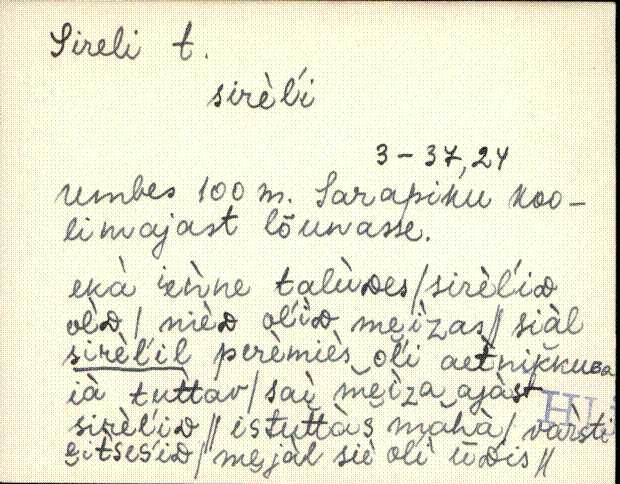 Sireli t.
sirèĺi
3-37,24
umbes 100 m. Sarapiku koo-
limajast lõunasse.
ekà ènne talùᴅes/sirèĺiᴅ
olᴅ/ nièᴅ oĺìᴅ mei̯zas// siàl
sirèĺil perèmiès oĺi aètnikku
ià tuttav/ sai mei̯za ajàst
sirèĺiᴅ// istuttàs mahà/ vàrsti
ei̯tseśiᴅ/ mejàl siè olì ūᴅis//